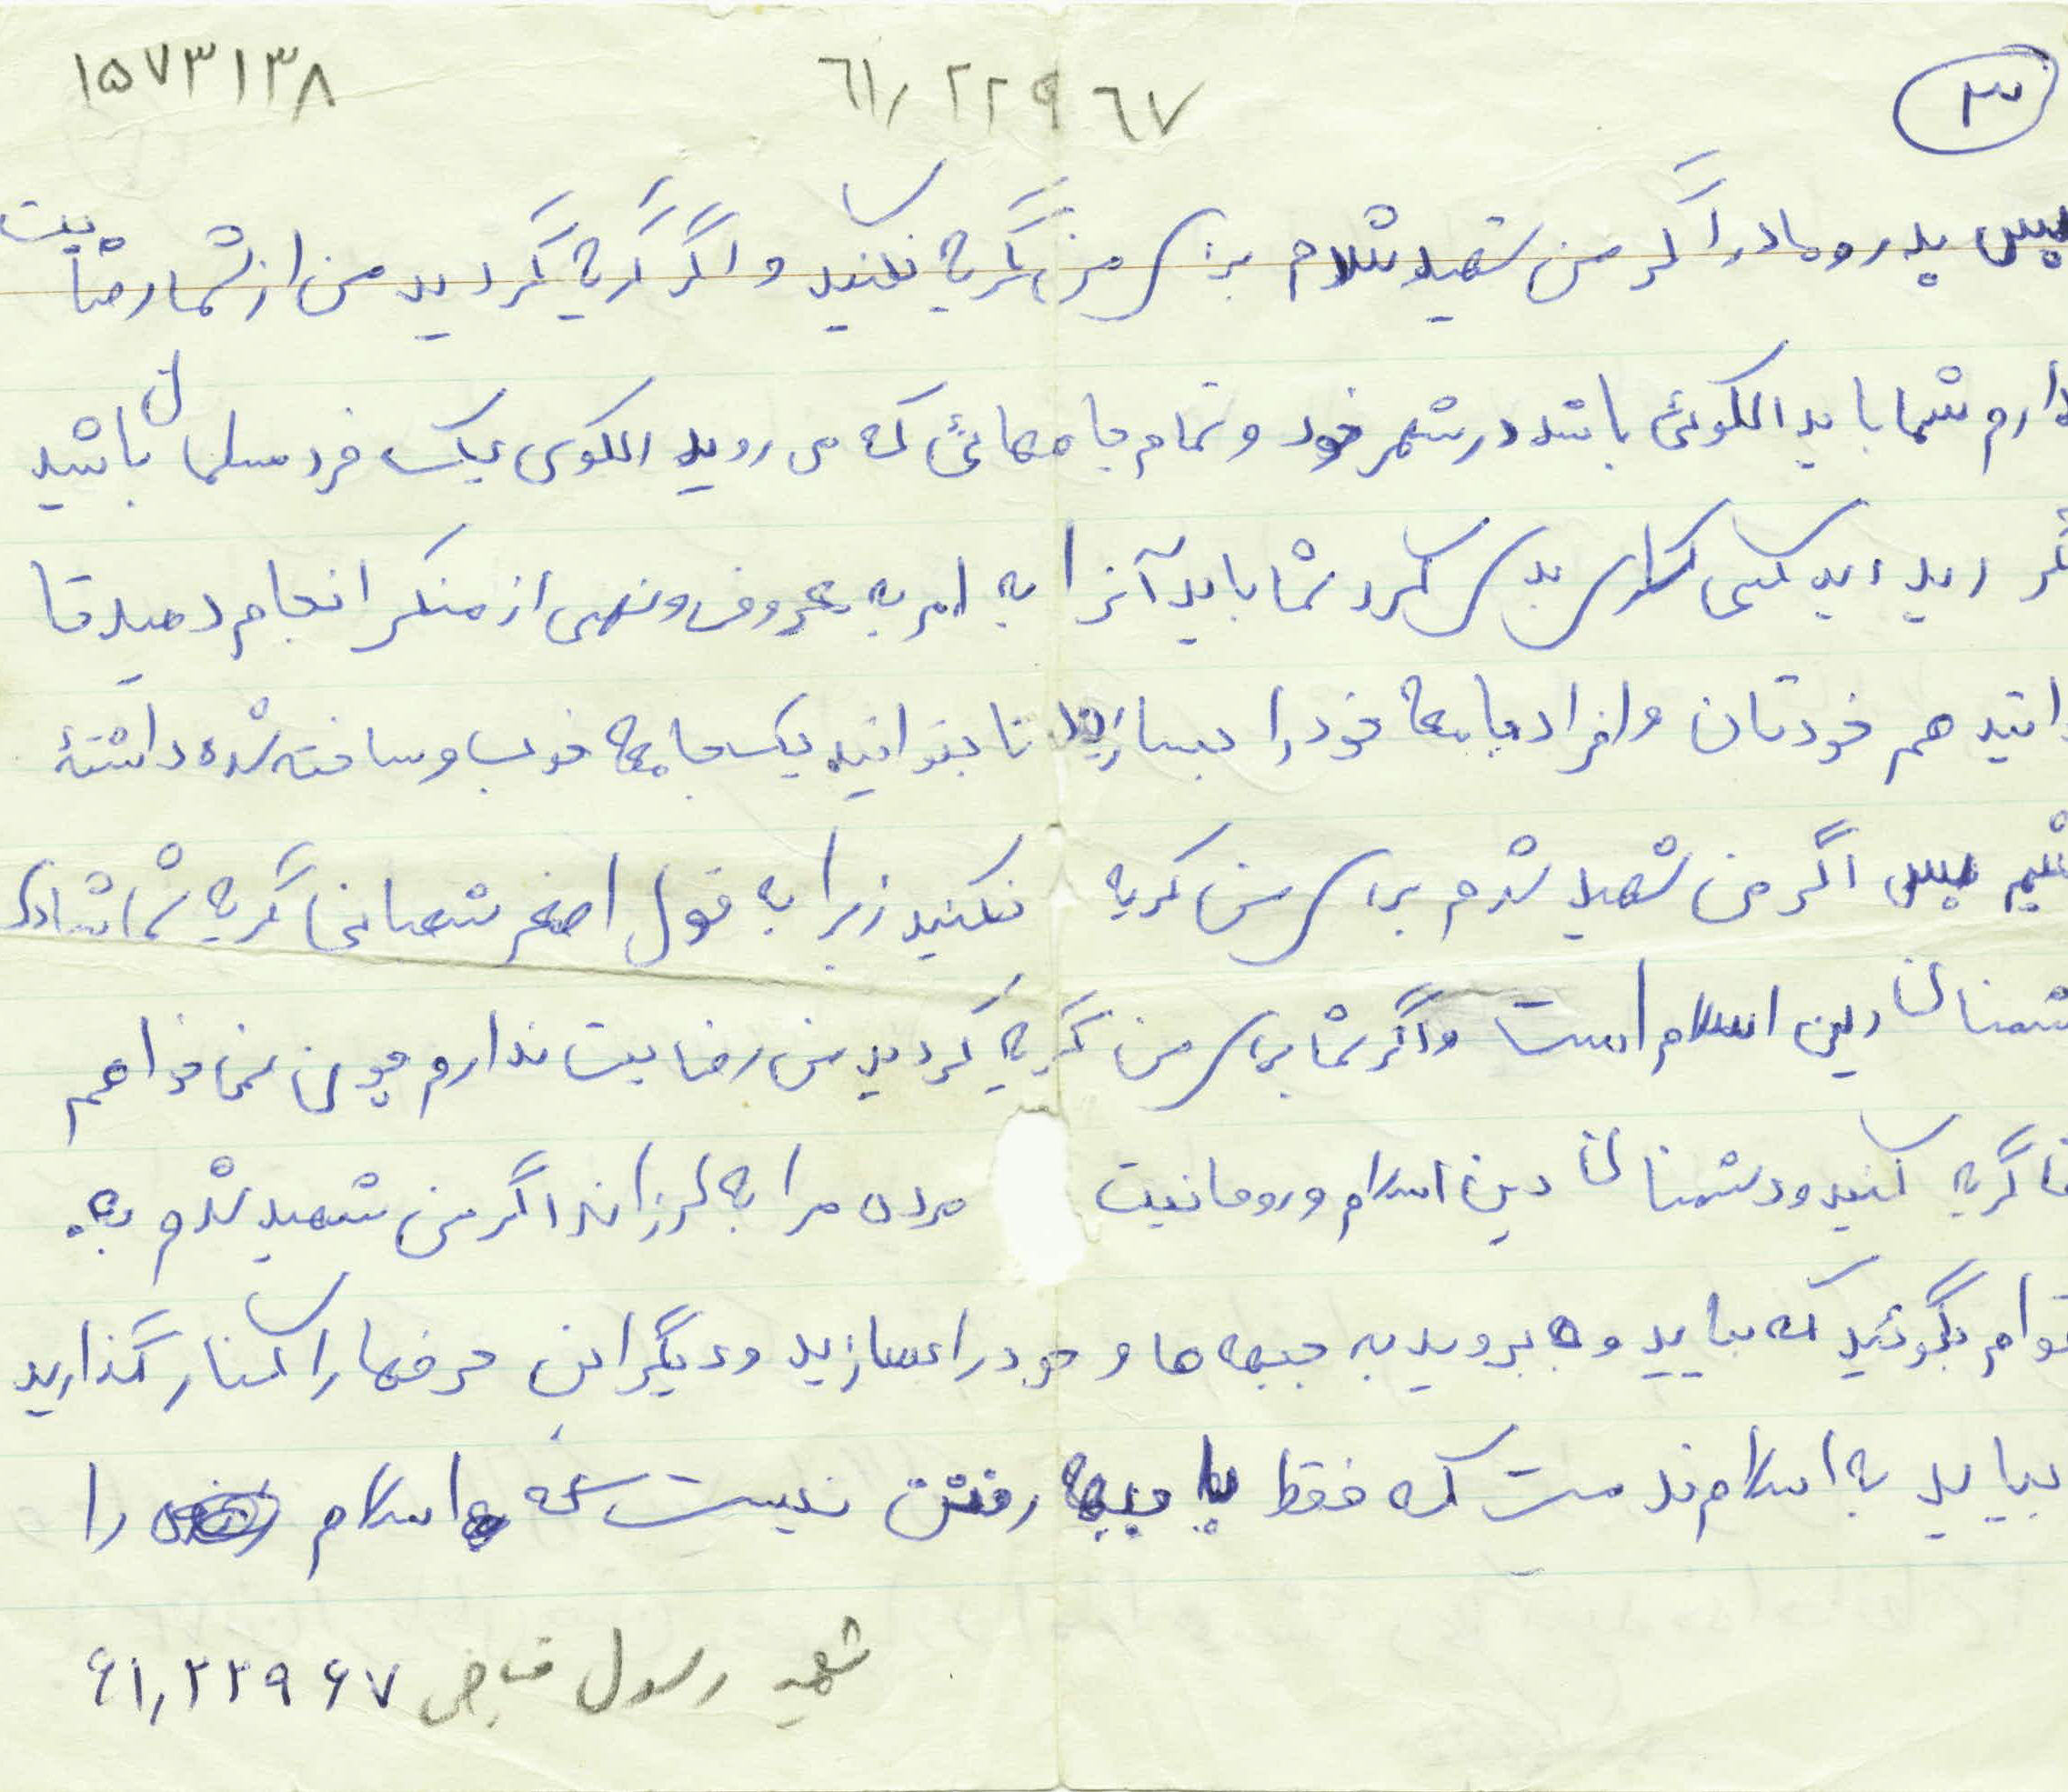 ۳ ٦١/٢٢٩٦٧ ۱۵۷۳۱۳۸
پس پدر و مادر اگر من شهید شدم برای من گریه نکنید و اگر گریه کردید من از شما رضایت
دارم شما باید الگوئی باشد در شهر خود و تمام جامعه‌ائی که می روید الگوی یک فرد مسلمان باشید
دید کسی کار بدی کرد شما باید آنرا به امر به معروف و نهی از منکر انجام دهید تا
هم خودتان و افراد جامعه خود را بسازید تا بتوانید یک جامعه خوب و ساخته شده داشته
پس اگر من شهید شدم برای من گریه نکنید زیرا به قول اصغر گریه شما شادی
دشمنان دین اسلام است و اگر شما برای من گریه کردید من رضایت ندارم چون نمی خواهم
گریه کنید و دشمنان دین اسلام و روحانیت مرده مرا به لرزاند اگر من شهید شدم به
بگوئید که بیاید و بروید به جبهه ها و خود را بسازید و دیگر این حرفها را کنار گذارید
بیاید به اسلام که فقط جبهه رفتن نیست اسلام را
شهید رسول ۶۱/۲۲۹۶۷